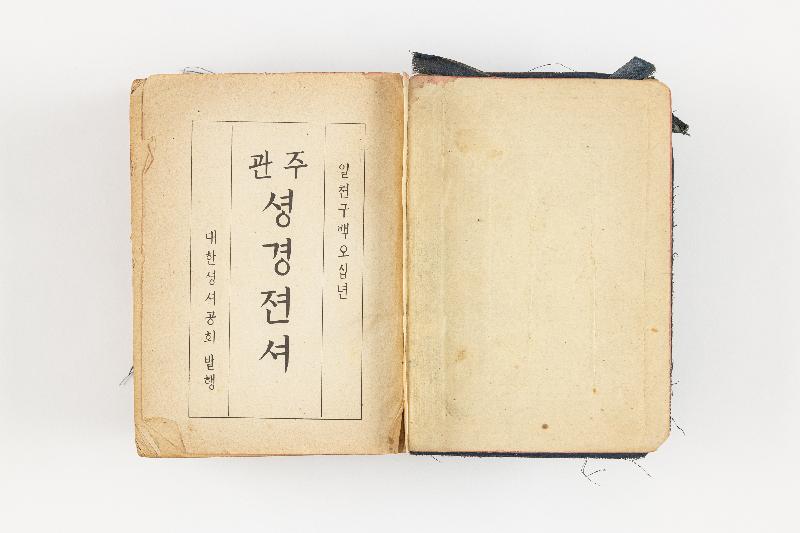 일천구백오십년
관주
셩경젼셔
대한성서공회 발행